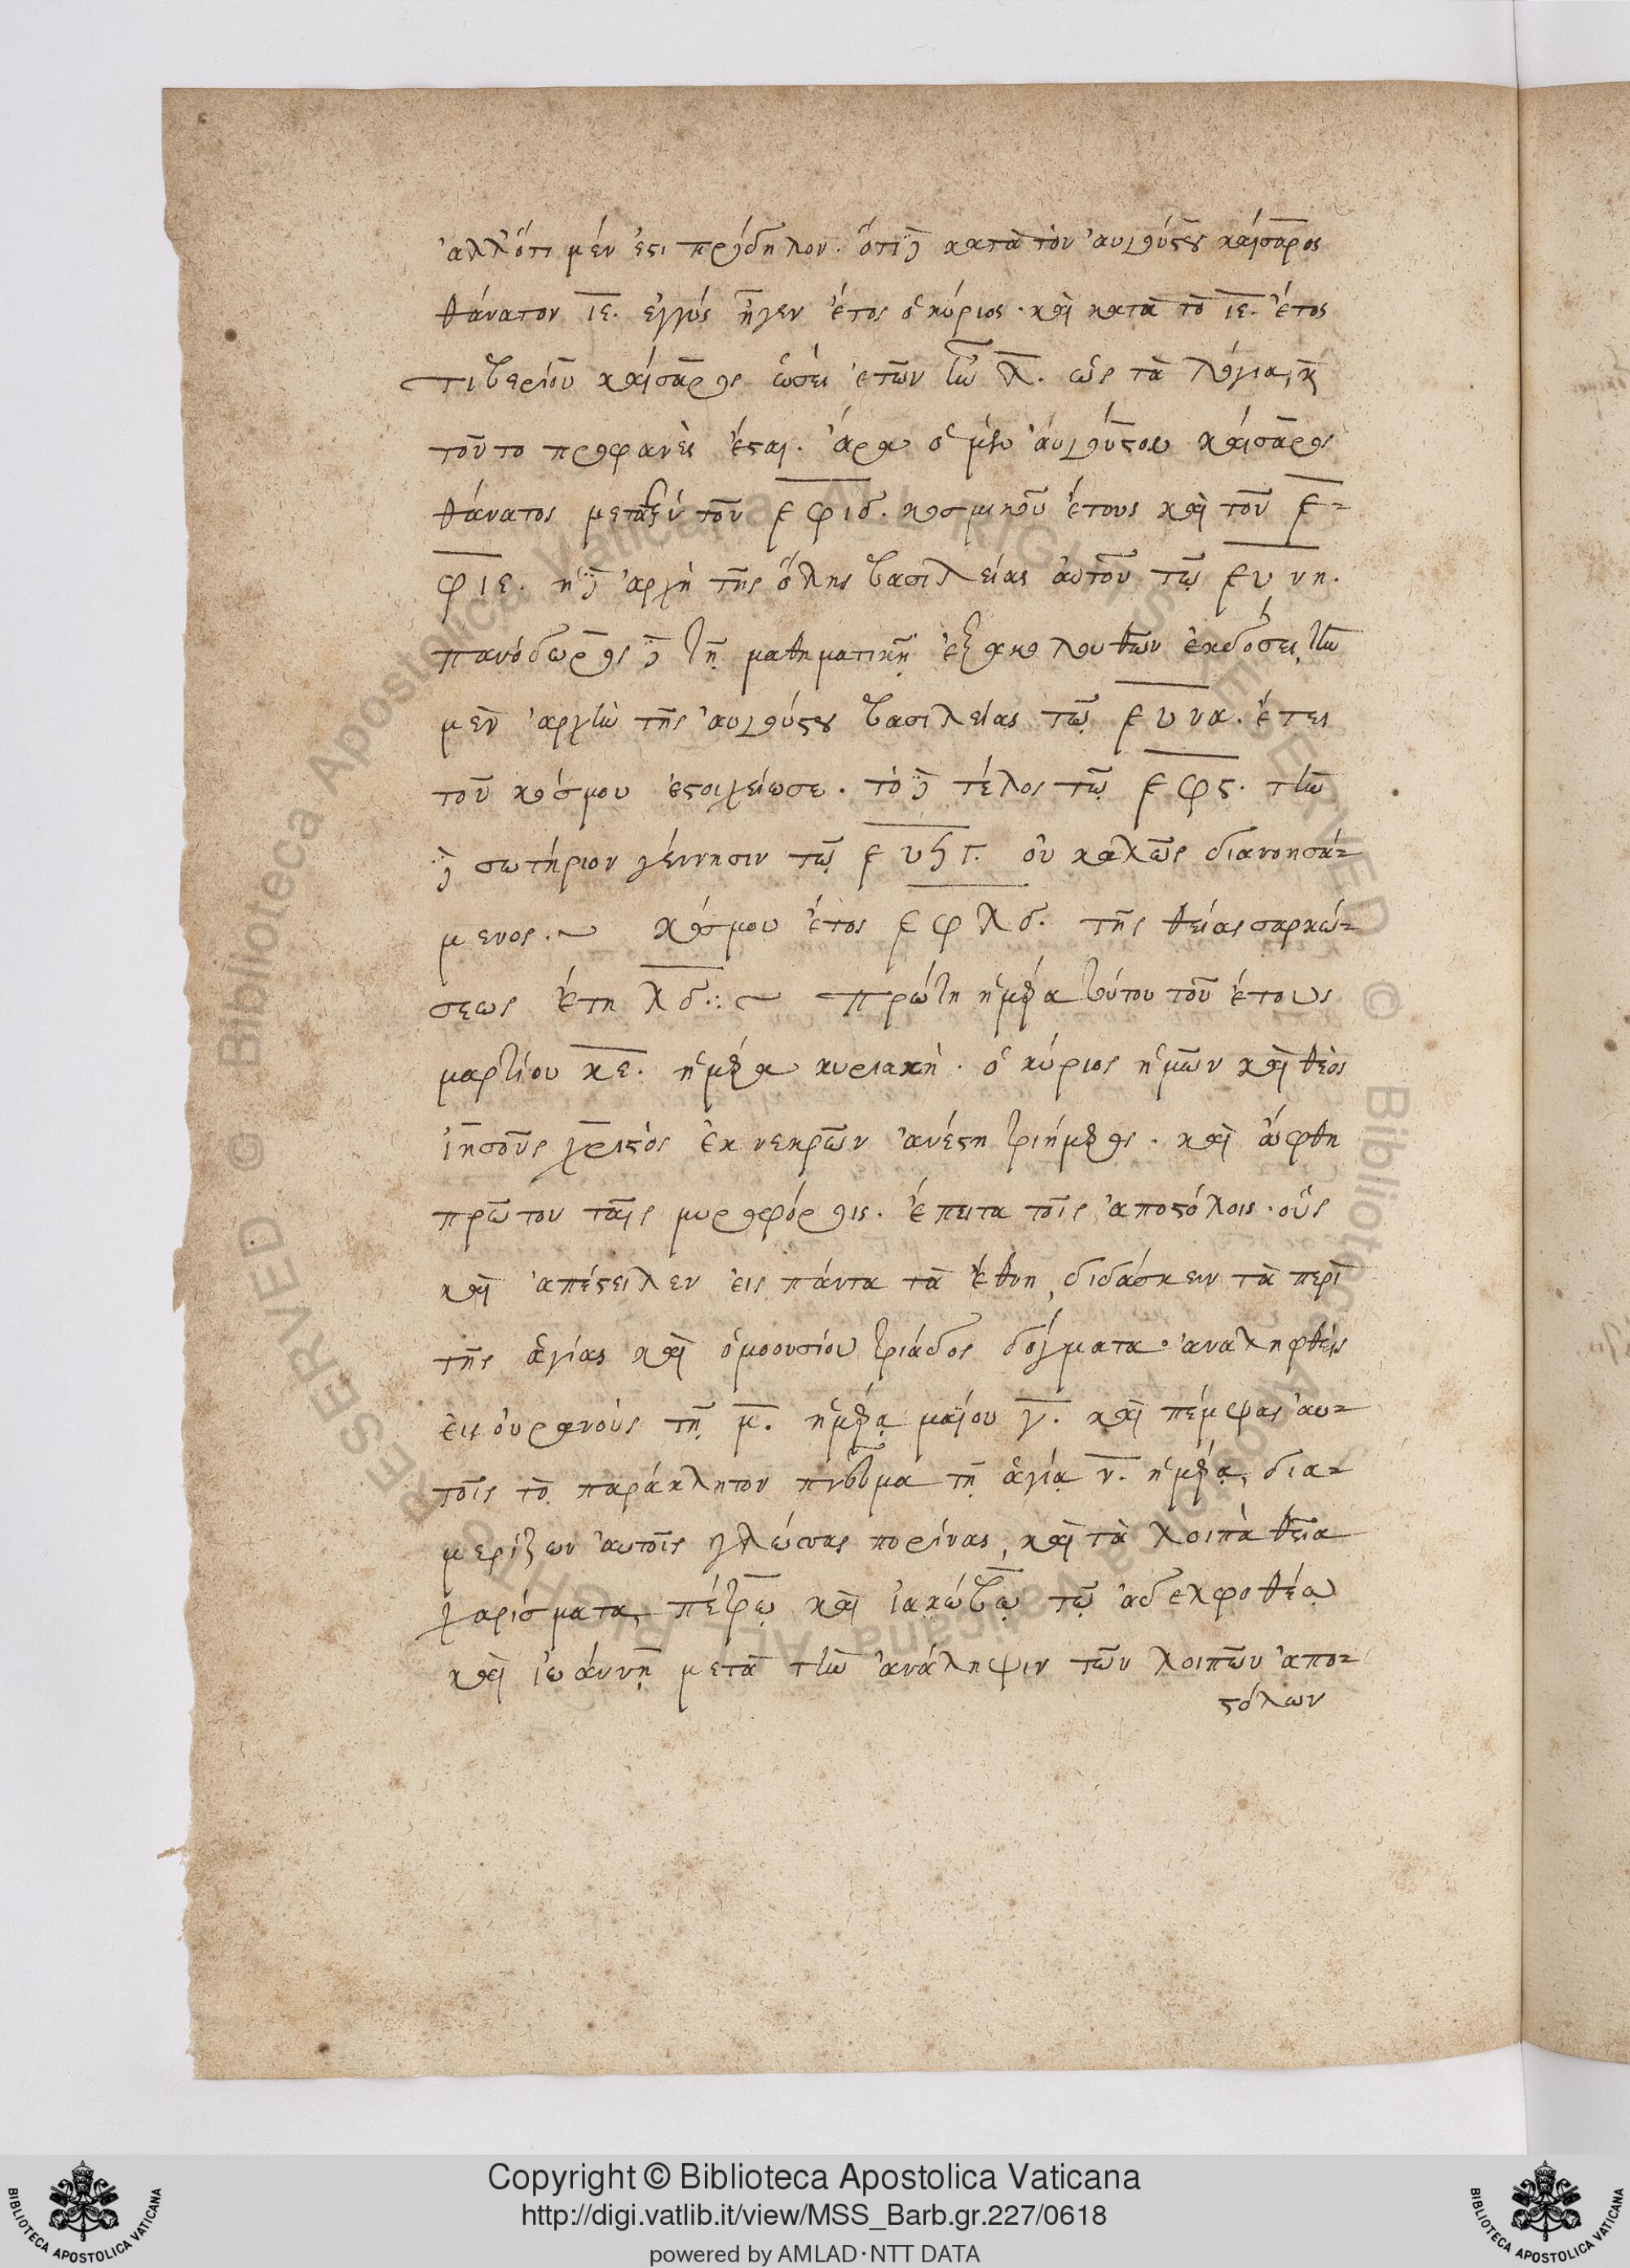 ἀλλ' ὅτι μέν ἐστι πρόδηλον. ὅτι δὲ κατὰ τὸν αὐγούστου καίσαρος
θάνατον ιε. ἐγγύς ἦγεν ἔτος ὁ κύριος. καὶ κατὰ τὸ ιε. ἔτος
τιβερίου καίσαρος ὡσεὶ ἐτῶν ἦν λ. ὡς τὰ λόγια, καὶ
τοῦτο προφανὲς ἔσται. ἄρα ὁ μὲν αὐγούστου καίσαρος
θάνατος μεταξὺ τοῦ ͵εφιδ. κοσμικοῦ ἔτους καὶ τοῦ ͵ε-
φιε. ἡ δὲ ἀρχὴ τῆς ὅλης βασιλείας αὐτοῦ τῷ ͵ευνη.
πανόδωρος δὲ τῇ μαθηματικῇ ἐξακολουθῶν ἐκδόσει, τὴν
μὲν ἀρχὴν τῆς αὐγούστου βασιλείας τῷ ͵ευνα. ἔτει
τοῦ κόσμου ἐστοιχείωσε. τὸ δὲ τέλος τῷ ͵εφϛ. τὴν
δὲ σωτήριον γέννησιν τῷ ͵ευϟγ. οὐ καλῶς διανοησά-
μενος. κόσμου ἔτος ͵εφλδ. τῆς θείας σαρκώ-
σεως ἔτη λδ. πρώτη ἡμέρα τούτου τοῦ ἔτους
μαρτίου κε. ἡμέρα κυριακὴ. ὁ κύριος ἡμῶν καὶ θεὸς
ἰησοῦς χριστὸς ἐκ νεκρῶν ἀνέστη τριήμερος. καὶ ὤφθη
πρῶτον ταῖς μυροφόροις. ἔπειτα τοῖς ἀποστόλοις. οὓς
καὶ ἀπέστειλεν εἰς πάντα τὰ ἔθνη, διδάσκειν τὰ περὶ
τῆς ἁγίας καὶ ὁμοουσίου τριάδος δόγματα. ἀναληφθεὶς
εἰς οὐρανοὺς τῇ μ. ἡμέρᾳ μαΐου γ. καὶ πέμψας αὐ-
τοῖς τὸ παράκλητον πνεῦμα τῇ ἁγίᾳ ν. ἡμέρᾳ, δια-
μερίζων αὐτοῖς γλώσσας πυρίνας, καὶ τὰ λοιπὰ θεῖα
χαρίσματα, πέτρῳ καὶ ἰακώβῳ τῷ ἀδελφοθέῳ
καὶ ἰωάννῃ μετὰ τὴν ἀνάληψιν τῶν λοιπῶν ἀπο-
στόλων
© Biblioteca Apostolica Vaticana ALL RIGHTS RESERVED © Biblioteca Apostolica Vaticana ALL RIGHTS RESERVED
Copyright © Biblioteca Apostolica Vaticana
http://digi.vatlib.it/view/MSS_Barb.gr.227/0618
powered by AMLAD·NTT DATA
BIBLIOTECA APOSTOLICA VATICANA
BIBLIOTECA APOSTOLICA VATICANA